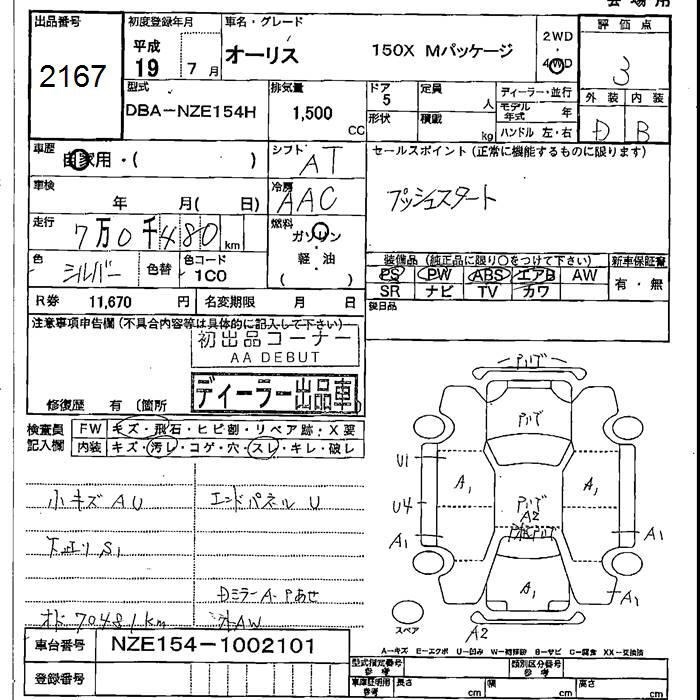 会場用
出品番号
2167
初度登録年月
平成
19 7月
車名・グレード
オーリス 150X Mパッケージ
2WD
4WD
評価点
3
型式
DBA-NZE154H
排気量
1,500
CC
ドア
5
形状
定員
人
積載
kg
ディーラー・並行
モデル
年式 年
ハンドル 左・右
外装 内装
D B
車歴
自家用・( )
シフト
AT
セールスポイント(正常に機能するものに限ります)
プッシュスタート
車検
年 月( 日)
冷房
AAC
走行
7万0千480km
燃料
ガソリン
軽・油
( )
色
シルバー
色替
色コード
1C0
装備品(純正品に限り○をつけて下さい)
新車保証書
PS PW ABS エアB AW
SR ナビ TV カワ
有・無
R券 11,670 円
名変期限 月 日
後日品
注意事項申告欄(不具合内容等は具体的に記入して下さい)
初出品コーナー
AA DEBUT
ディーラー出品車
修復歴 有(箇所 )
検査員
記入欄
FW キズ・飛石・ヒビ割・リペア跡・X要
内装 キズ・汚レ・コゲ・穴・スレ・キレ・破レ
小キズAU エンドパネルU
下エリS1
DミラーA・Pあせ
オド70481km 社外AW
車台番号 NZE154-1002101
登録番号
U1
U4
A1
A1
A1
A2
A1
A1
A1
A1
A2
スペア
A-キズ E-エクボ U-凹み W-補修跡 B-サビ C-腐食 XX-交換済
型式指定番号
参考
類別区分番号
参考
車庫証明用
参考
長さ cm
幅 cm
高さ cm